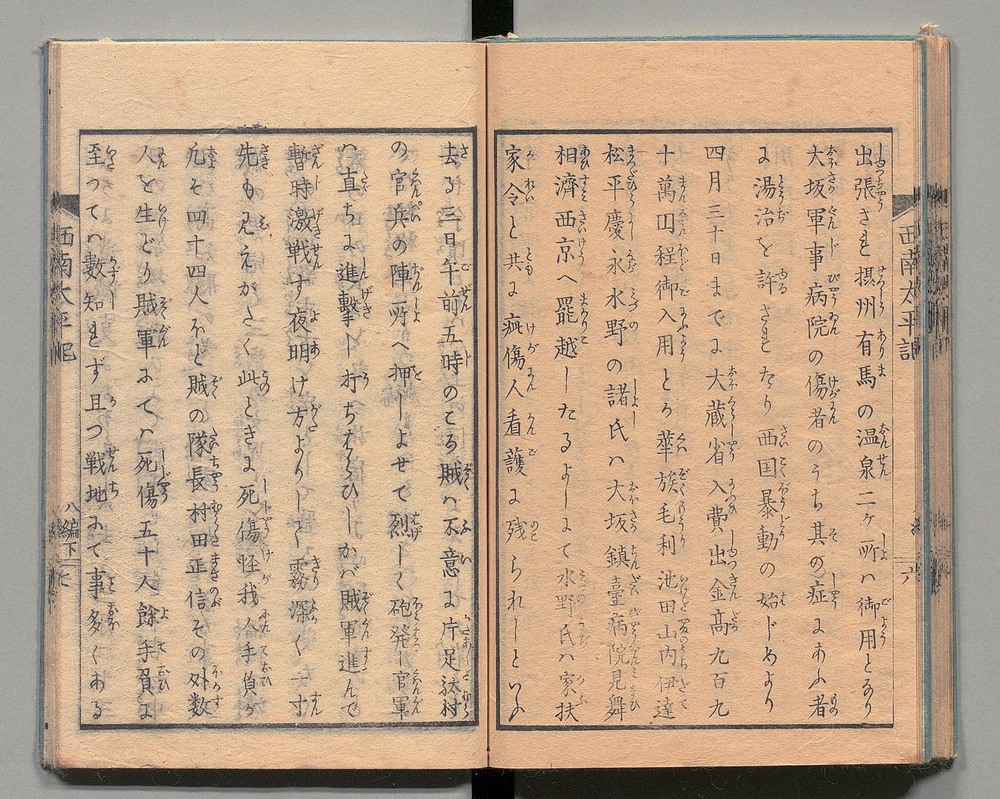 出張され摂州有馬の温泉二ヶ所ハ御用となり
大坂軍事病院の傷者のうち其の症にあふ者
ハ湯治を許されたり西国暴動の始じめより
四月三十日までに大蔵省入費出金高九百九
十萬円程御入用とか華族毛利池田山内伊達
松平慶永水野の諸氏ハ大坂鎮臺病院見舞
相濟西京へ罷越したるよしにて水野氏ハ家扶
家令と共に疵傷人看護に残られしといふ
西南太平記
六
去る三日午前五時のころ賊ハ不意に片足村
の官兵の陣所へ押しよせて烈しく砲発し官軍
ハ直ちに進撃し打ちはらひしかバ賊軍進んで
暫時激戦す夜明け方よりして霧深く一寸
先も見えがたく此ときに死傷怪我人手負が
凡そ四十四人ほど賊の隊長村田正信その外数
人を生どり賊軍にてハ死傷五十人餘手負に
至つてハ數知れず且つ戦地にて事多くある
西南太平記
八編下
七